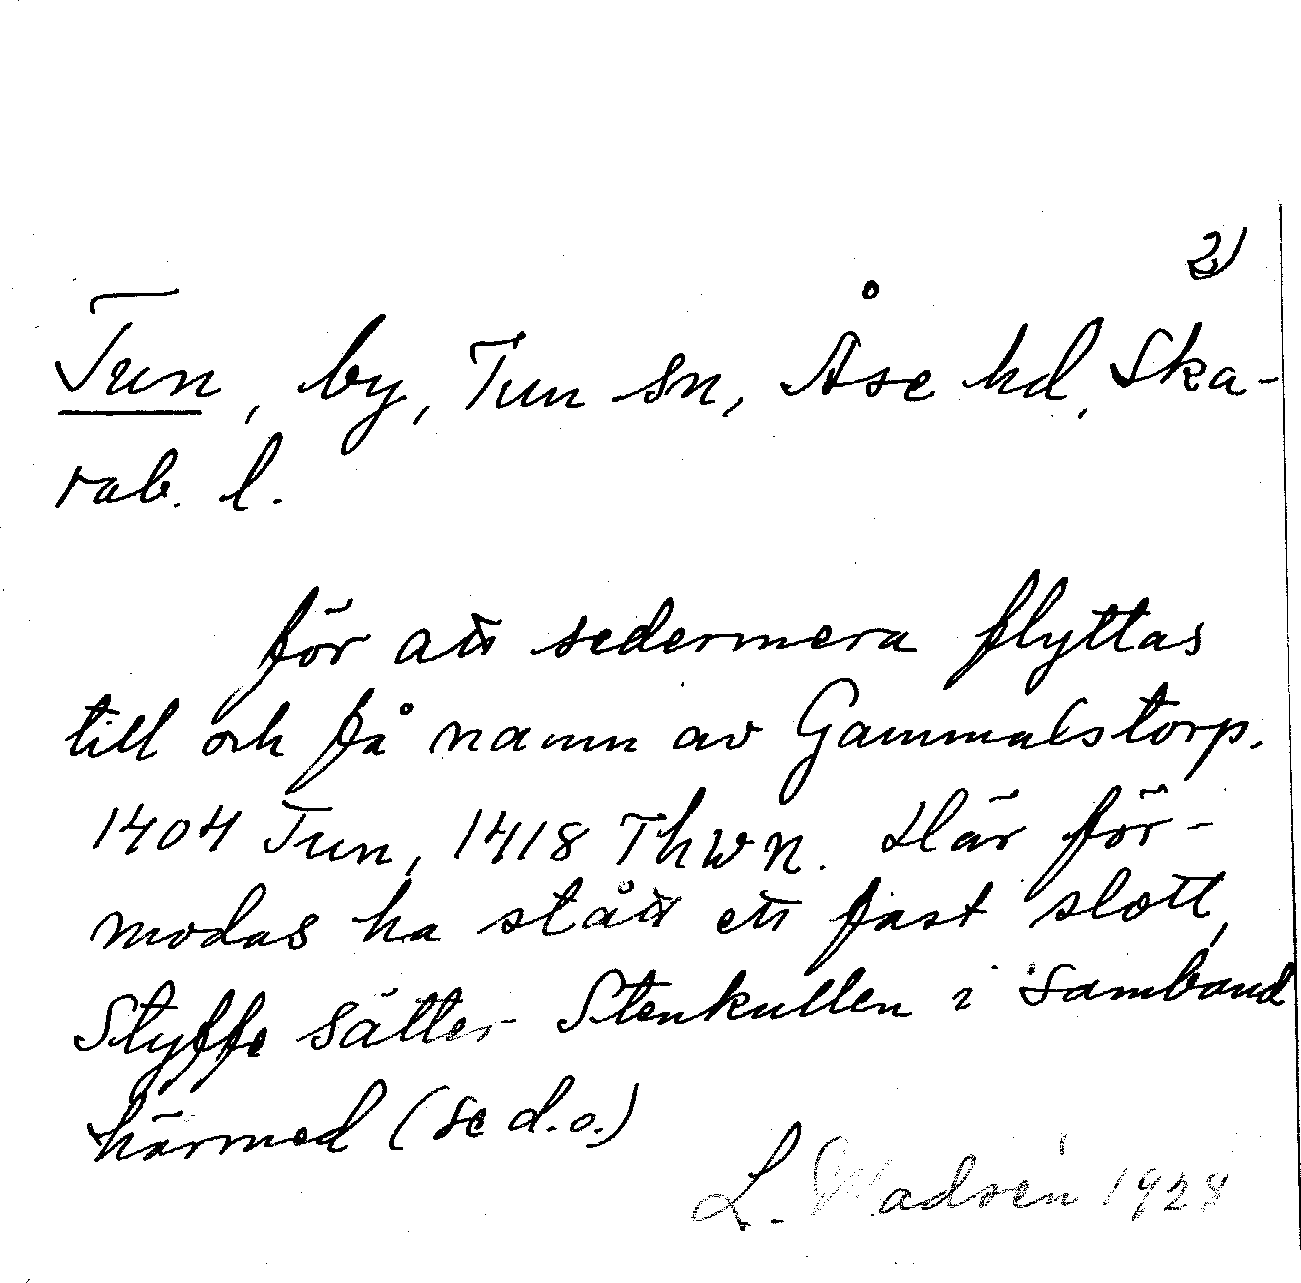 2)
Tun, by, Tun sn, Åse hd, Ska-
rab. l.
för att sedermera flyttas
till och få namn av Gammalstorp.
1404 Tun, 1418 Thwn. Här för-
modas ha stått ett fast slott,
Styffe sätter Stenkullen i samband
härmed (se d.o.)
L. Wadsén 1928